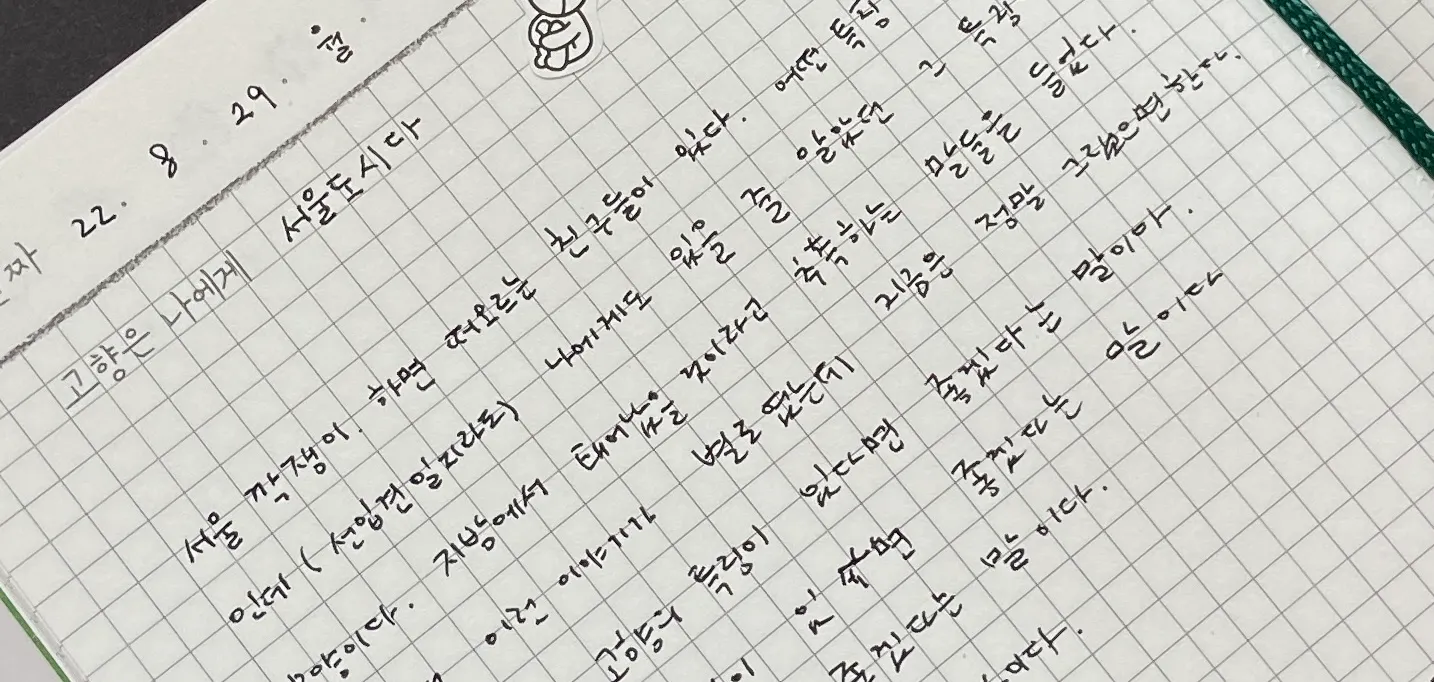 22. 8. 29. 월
고향은 나에게 서울도시다
서울 깍쟁이. 하면 떠오르는 친구들이 있다. 어떤 특징
인데 (선입견일지라도) 나에게도 있을 줄 알았던 그 특징
지방에서 태어났을 것이라고 추측하는 말들을 들었다.
이런 이야기가 별로 없는데 지금은 정말 그랬으면 한다.
고향의 특징이 있다면 좋겠다는 말이야.
있다면 좋겠다는 말이다
좋겠다는 말이다.